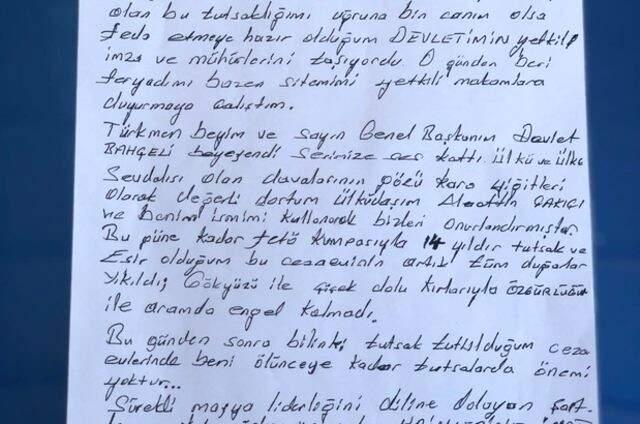 olan bu tutsaklığımı uğruna bin canım olsa
feda etmeye hazır olduğum DEVLETİMİN yetkili
imza ve mühürlerini taşıyordu. O günden beri
feryadımı bazen sitemimi yetkili makamlara
duyurmaya çalıştım.
Türkmen beyim ve sayın Genel Başkanım Devlet
BAHÇELİ beyefendi sesimize ses kattı. Ülkü ve Ülke
Sevdalısı olan davalarının gözü kara yiğitleri
olarak değerli dostum Ülküdaşım Alaattin ÇAKICI
ve benim ismimi kullanarak bizleri onurlandırmıştır
Bu güne kadar fetö kumpasıyla 14 yıldır tutsak ve
Esir olduğum bu cezaevinin artık tüm duvarlar
Yıkıldı; Gökyüzü ile çiçek dolu kırlarıyla ÖZGÜRLÜĞÜM
ile aramda engel kalmadı.
Bu günden sonra bilinki tutsak tutulduğum ceza
evlerinde beni ölünceye kadar tutsalarda önemi
yoktur...
Sürekli mafya liderliğini diline dolayan